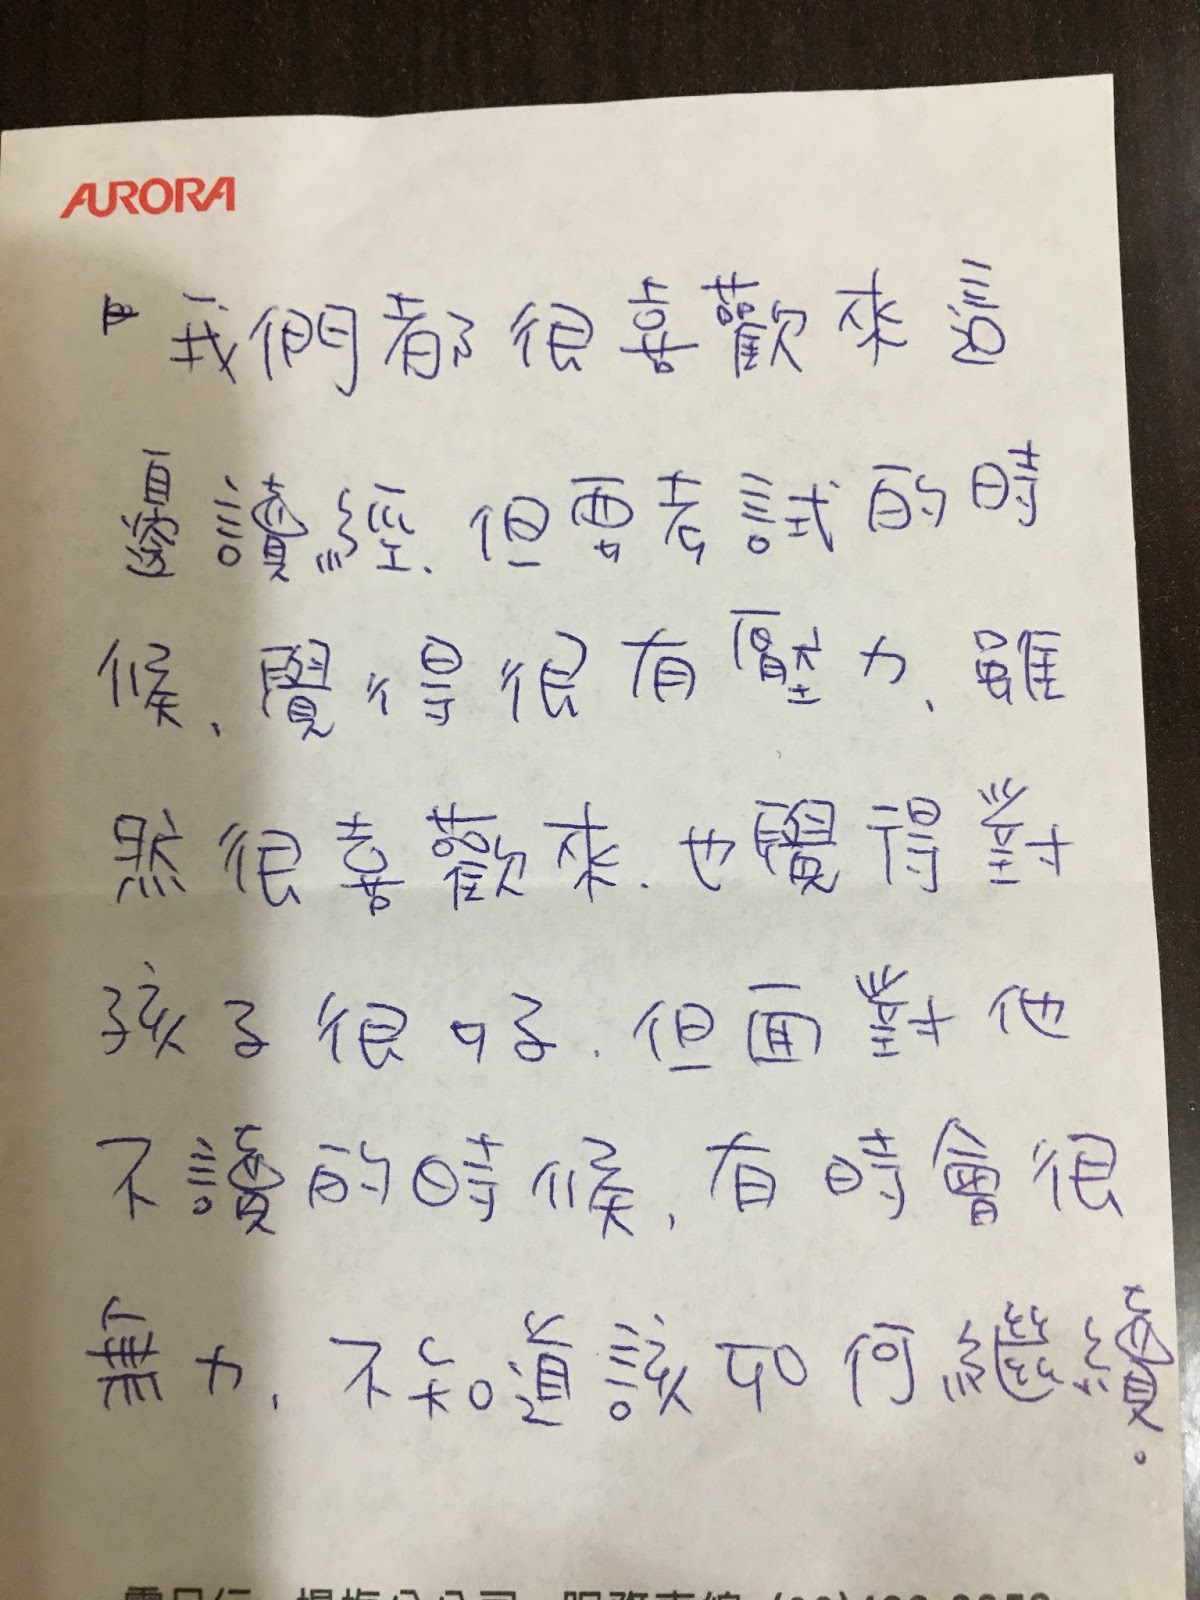 AURORA
我們都很喜歡來這
邊讀經,但要考試的時
候,覺得很有壓力,雖
然很喜歡來,也覺得對
孩子很好,但面對他
不讀的時候,有時會很
無力,不知道該如何繼續。